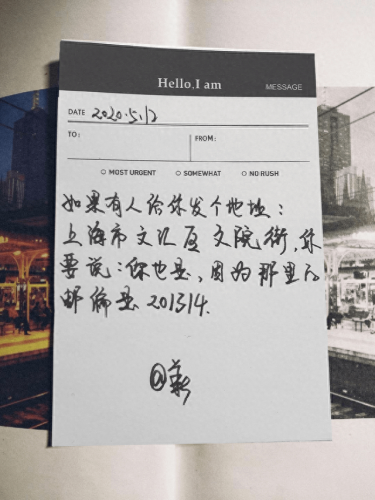 Hello,I am
MESSAGE
DATE 2020.5.12
TO:
FROM:
MOST URGENT
SOMEWHAT
NO RUSH
如果有人给你发个地址:
上海市文汇区文院街,你
要说:你也是,因为那里的
邮编是201314.